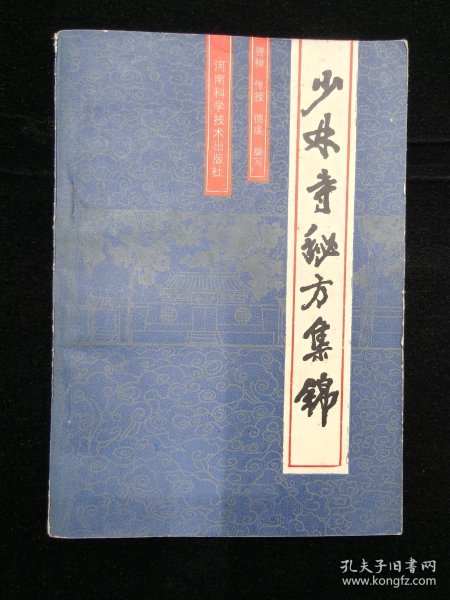 少林寺秘方集锦
德禅 传授 德虔 编写
河南科学技术出版社
孔夫子旧书网
www.kongfz.com